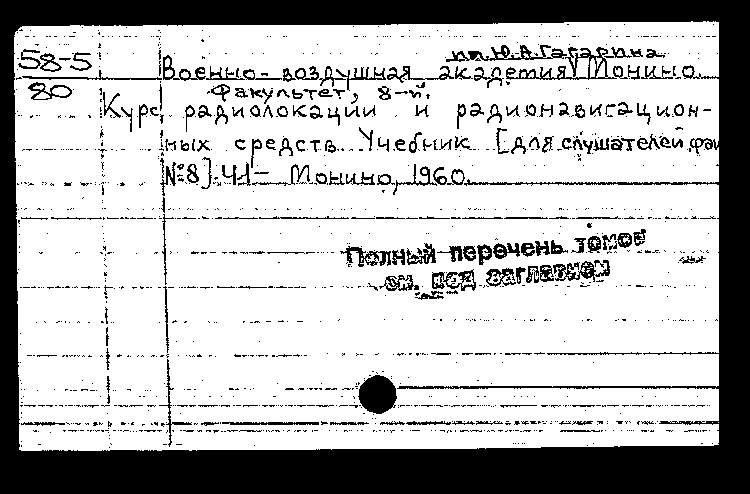 58-5
80
им. Ю.А. Гагарина
Военно-воздушная академия Монино.
Факультет, 8-й.
Курс радиолокации и радионавигацион-
ных средств. Учебник [для слушателей фак
№8]. Ч1- Монино, 1960.
Полный перечень томов
см. под заглавием